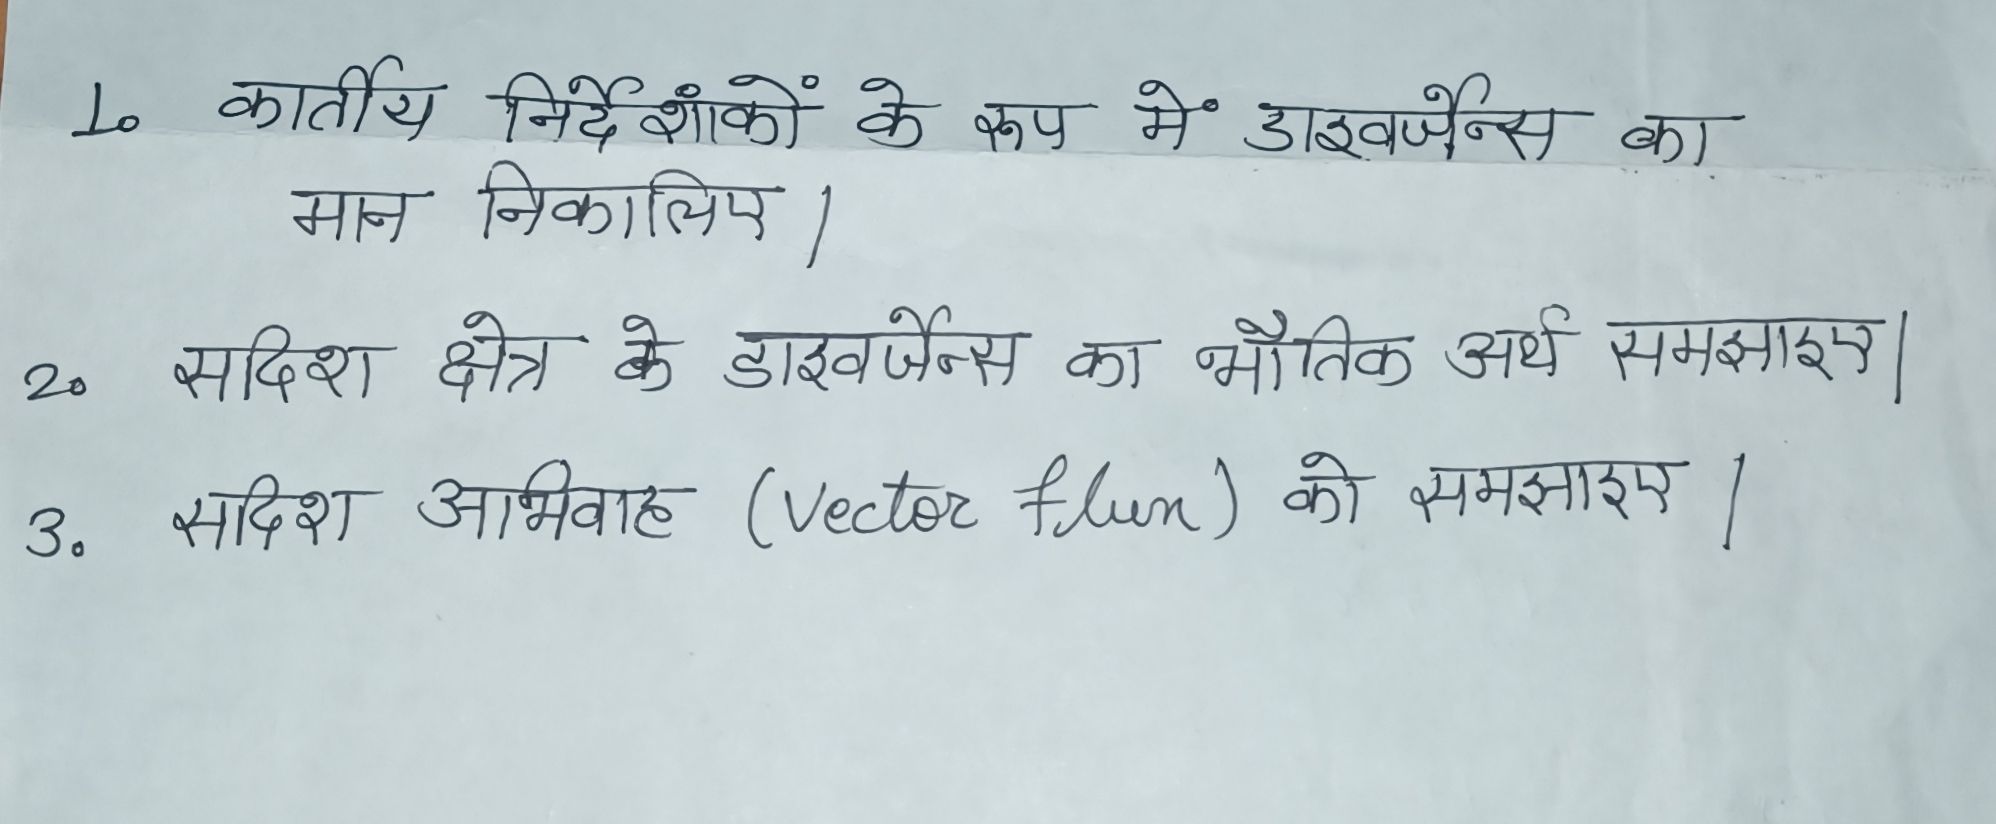 1. कार्तीय निर्देशांकों के रूप में डाइवर्जेन्स का
मान निकालिए।
2. सदिश क्षेत्र के डाइवर्जेन्स का भौतिक अर्थ समझाइए।
3. सदिश अभिवाह (Vector flux) को समझाइए।